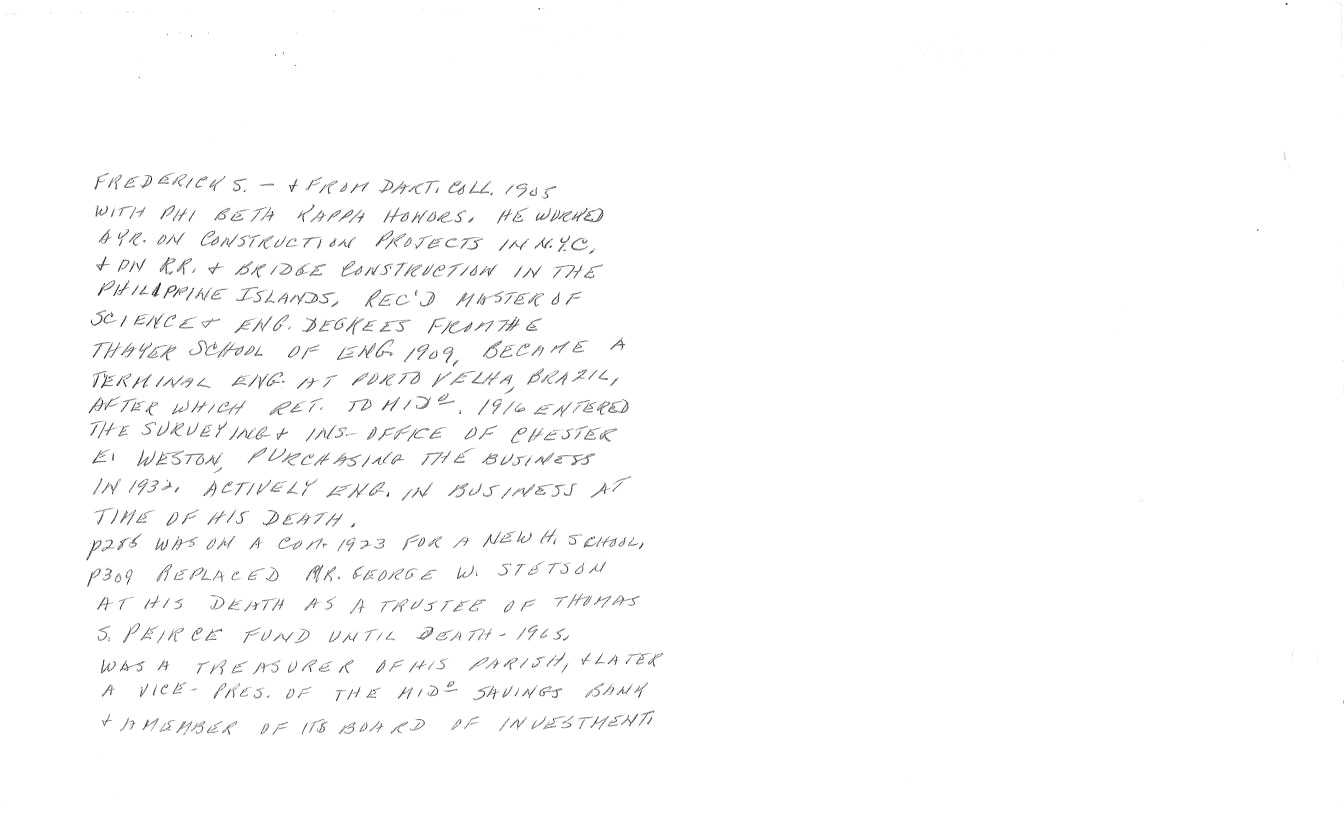 FREDERICK S. — + FROM DART. COLL. 1905
WITH PHI BETA KAPPA HONORS. HE WORKED
A YR. ON CONSTRUCTION PROJECTS IN N.Y.C.
+ ON R.R. + BRIDGE CONSTRUCTION IN THE
PHILIPPINE ISLANDS, REC'D MASTER OF
SCIENCE + ENG. DEGREES FROM THE
THAYER SCHOOL OF ENG. 1909, BECAME A
TERMINAL ENG. AT PORTO VELHA, BRAZIL,
AFTER WHICH RET. TO MIDº. 1916 ENTERED
THE SURVEYING + INS- OFFICE OF CHESTER
E. WESTON, PURCHASING THE BUSINESS
IN 1932. ACTIVELY ENG. IN BUSINESS AT
TIME OF HIS DEATH.
p286 WAS ON A COM. 1923 FOR A NEW H. SCHOOL,
p309 REPLACED MR. GEORGE W. STETSON
AT HIS DEATH AS A TRUSTEE OF THOMAS
S. PEIRCE FUND UNTIL DEATH - 1965.
WAS A TREASURER OF HIS PARISH, + LATER
A VICE- PRES. OF THE MIDº SAVINGS BANK
+ A MEMBER OF ITS BOARD OF INVESTMENT.